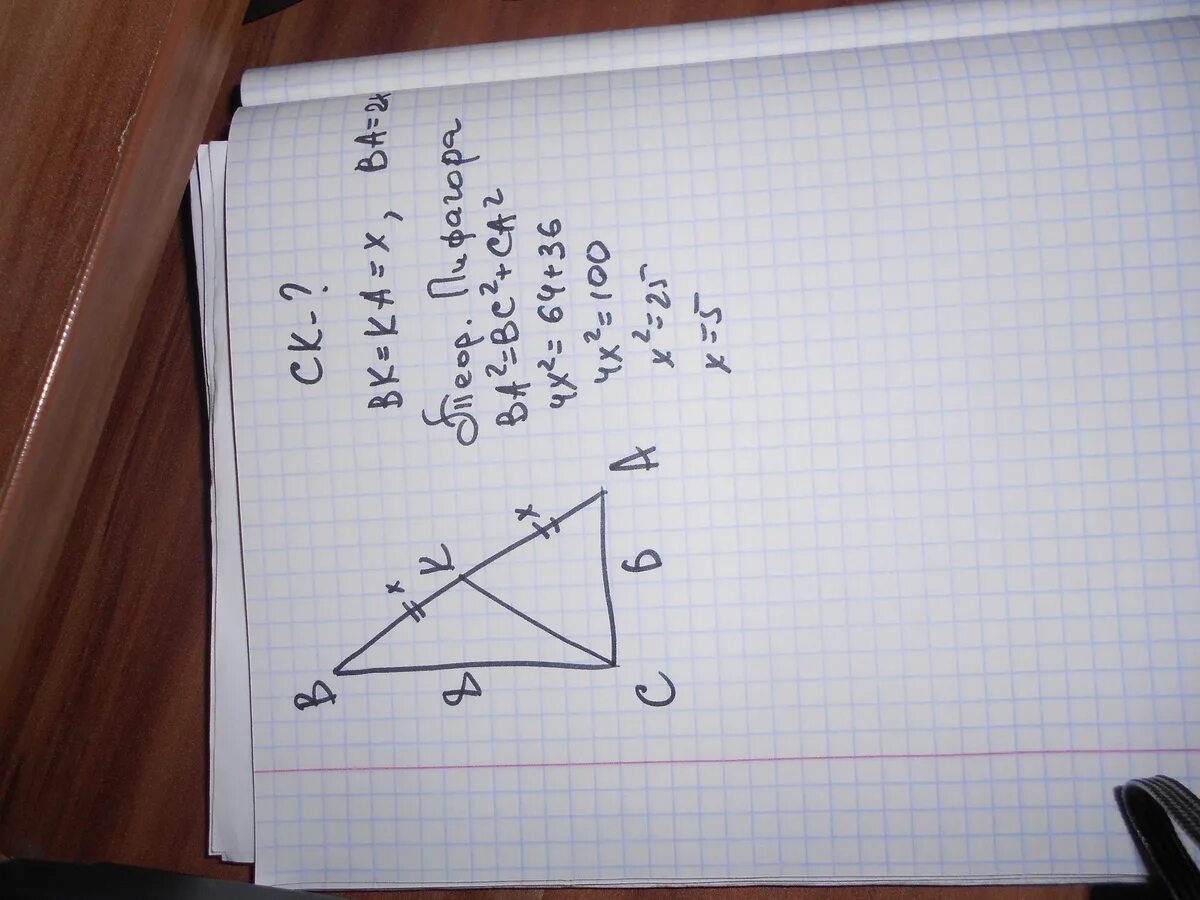 CK-?
BK=KA=x, BA=2x
Теор. Пифагора
BA²=BC²+CA²
4x²=64+36
4x²=100
x²=25
x=5
B
x
K
x
8
A
C
6